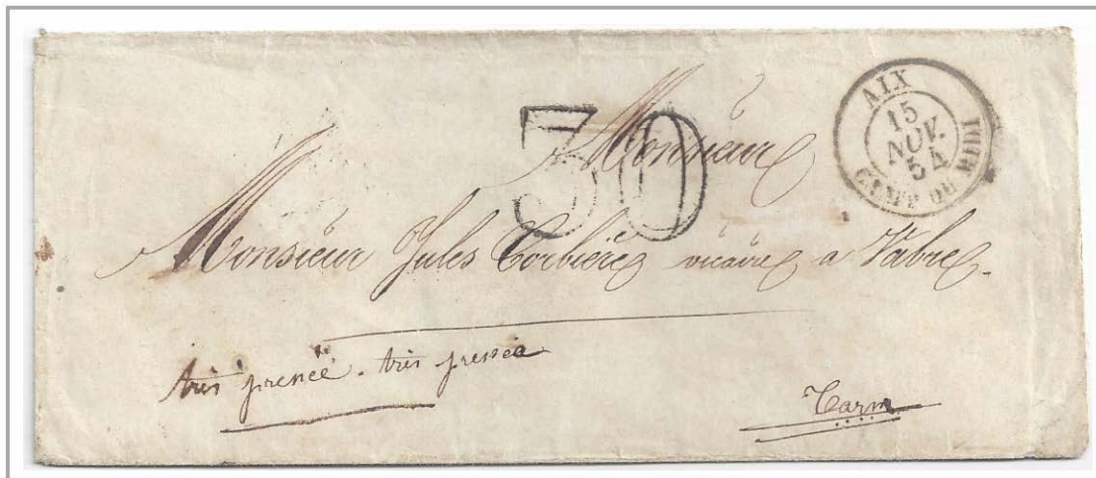 AIX
15
NOV.
54
CAMP DU MIDI
30
Monsieur
Monsieur Jules Corbière vicaire a Vabre.
très pressée. très pressée
Tarn